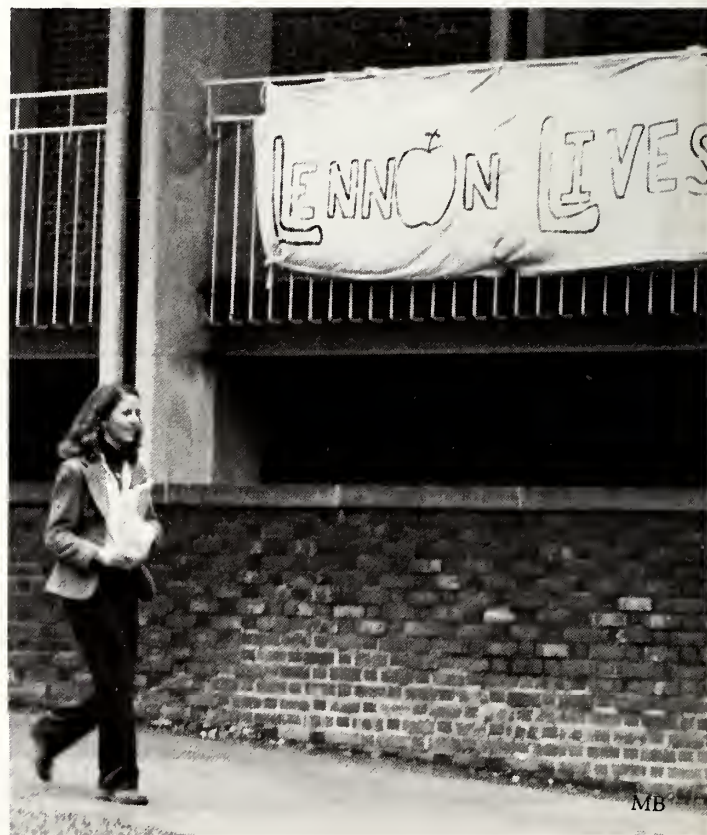 LENNON LIVES
MB